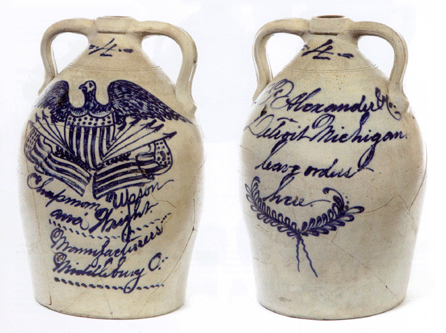 4
Chapman, Upson
and Wright
Manufacturers
Middlebury O.
4
Alexander &
Detroit Michigan
leave orders
here